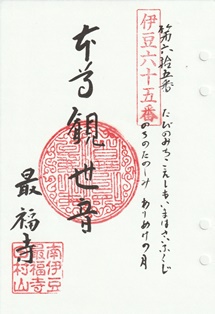 伊豆六十五番
第六拾五番
たびのみち こえしも いまはさいふくじ
のちのたのしみ ありあけの月
本尊 観世音
最福寺
南伊豆
最福寺
中村山